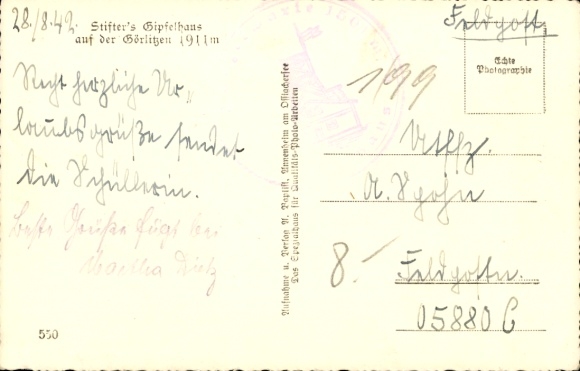 28./8.42.
Stifter's Gipfelhaus
auf der Görlitzen 1911m
Recht herzliche Ur„
laubsgrüße sendet
die Schüllerin.
Beste Grüße fügt bei
Martha Dietz
550
Aufnahme u. Verlag A. Baptist, Annenheim am Ossiachersee
Das Spezialhaus für Qualitäts-Photo-Arbeiten
Feldpost.
Echte
Photographie
199
Uffz.
A. Spohn
8.
Feldpostn.
05880 C